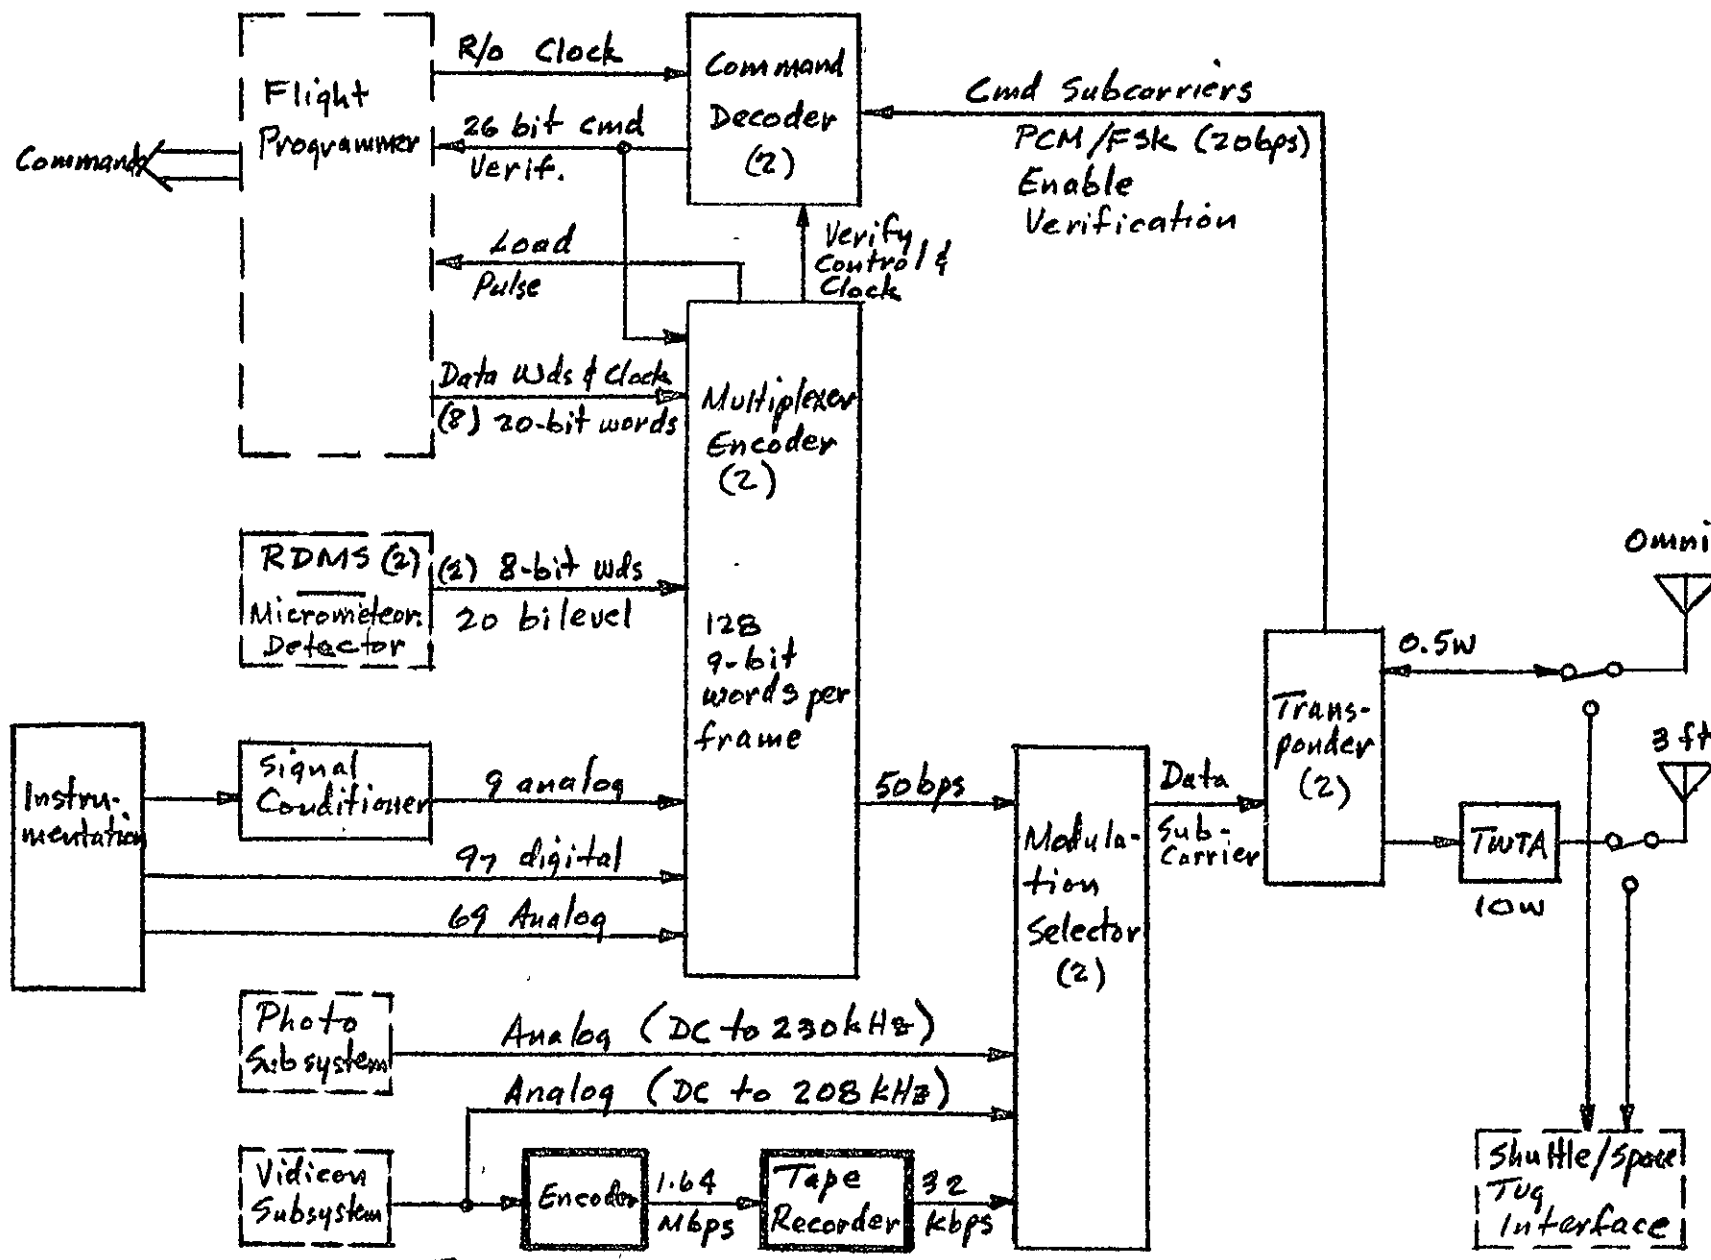 R/o Clock
Flight
Programmer
Commands
26 bit cmd
Verif.
Command
Decoder
(2)
Cmd Subcarriers
PCM/FSK (20bps)
Enable
Verification
Load
Pulse
Verify
Control &
Clock
Data Wds & Clock
(8) 20-bit words
Multiplexer
Encoder
(2)
128
9-bit
words per
frame
RDMS (2)
Micrometeor.
Detector
(2) 8-bit wds
20 bilevel
Instru-
mentation
Signal
Conditioner
9 analog
97 digital
69 Analog
50bps
Modula-
tion
Selector
(2)
Data
Sub-
Carrier
Trans-
ponder
(2)
0.5W
Omni
3 ft
TWTA
10W
Photo
Subsystem
Analog (DC to 230kHz)
Analog (DC to 208kHz)
Vidicon
Subsystem
Encoder
1.64
Mbps
Tape
Recorder
32
Kbps
Shuttle/Space
Tug
Interface